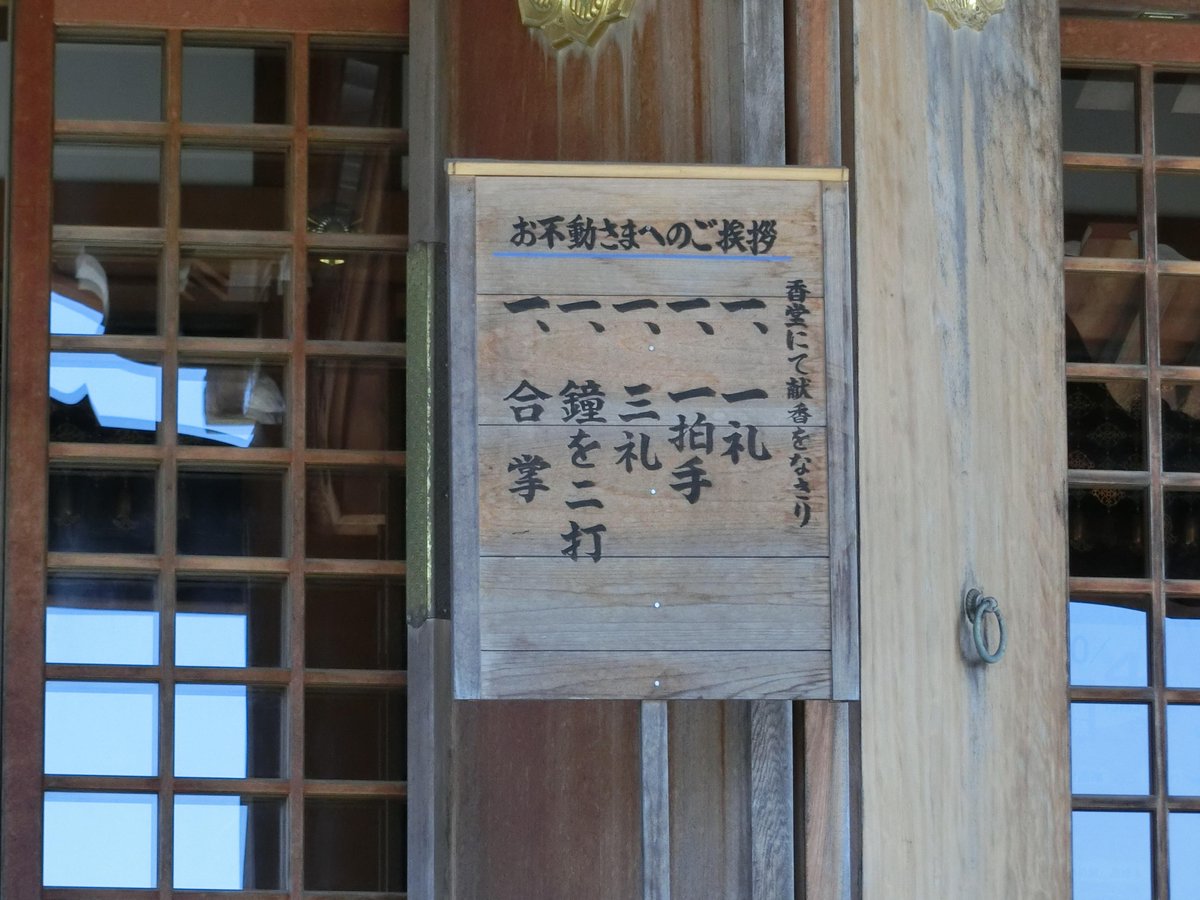 お不動さまへのご挨拶
香堂にて献香をなさり
一、一礼
一、一拍手
一、三礼
一、鐘を二打
一、合掌